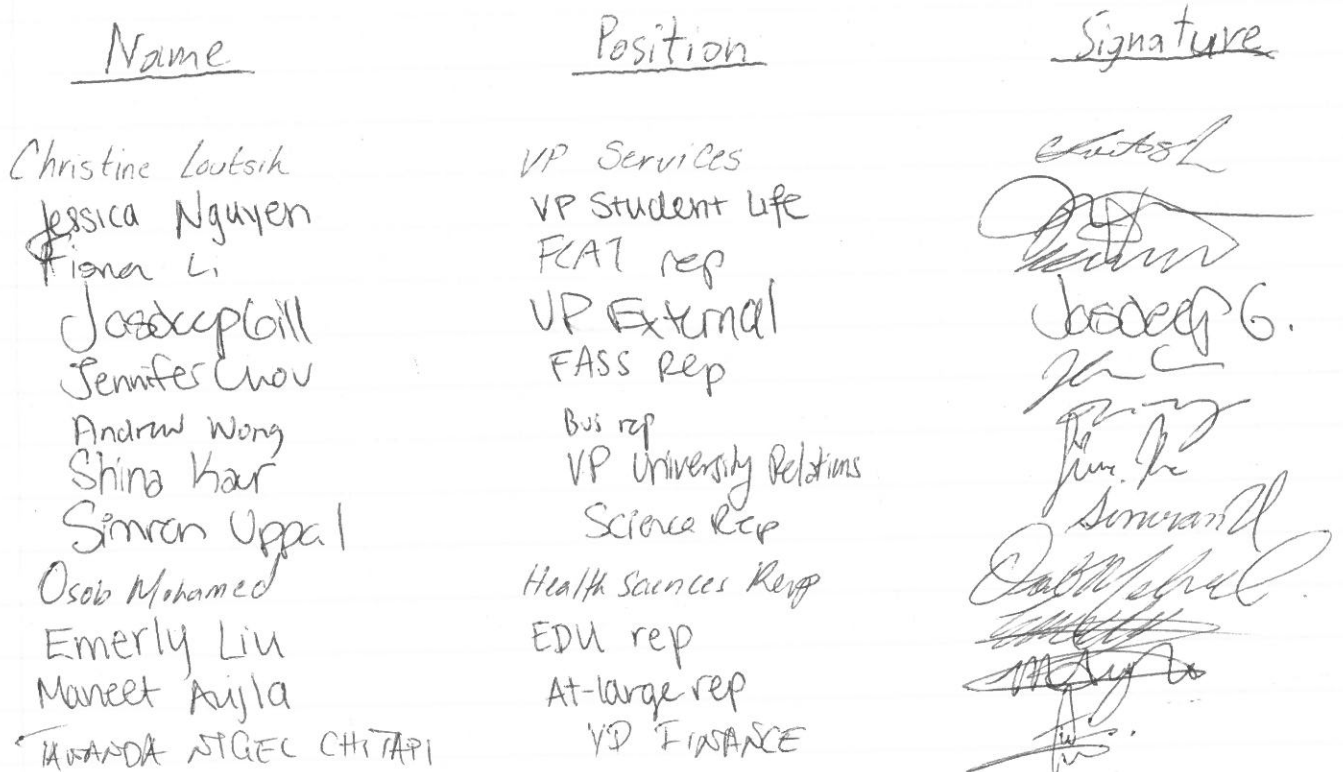 Name Position Signature
Christine Loutsik VP Services
Jessica Nguyen VP Student Life
Fiona Li FCAT rep
Jasdeep Gill VP External Jasdeep G.
Jennifer Chou FASS Rep
Andrew Wong Bus rep
Shina Kaur VP University Relations
Simran Uppal Science Rep Simran U
Osob Mohamed Health Sciences Rep
Emerly Liu EDU rep
Maneet Aujla At-large rep
TAWANDA NIGEL CHITAPI VP FINANCE